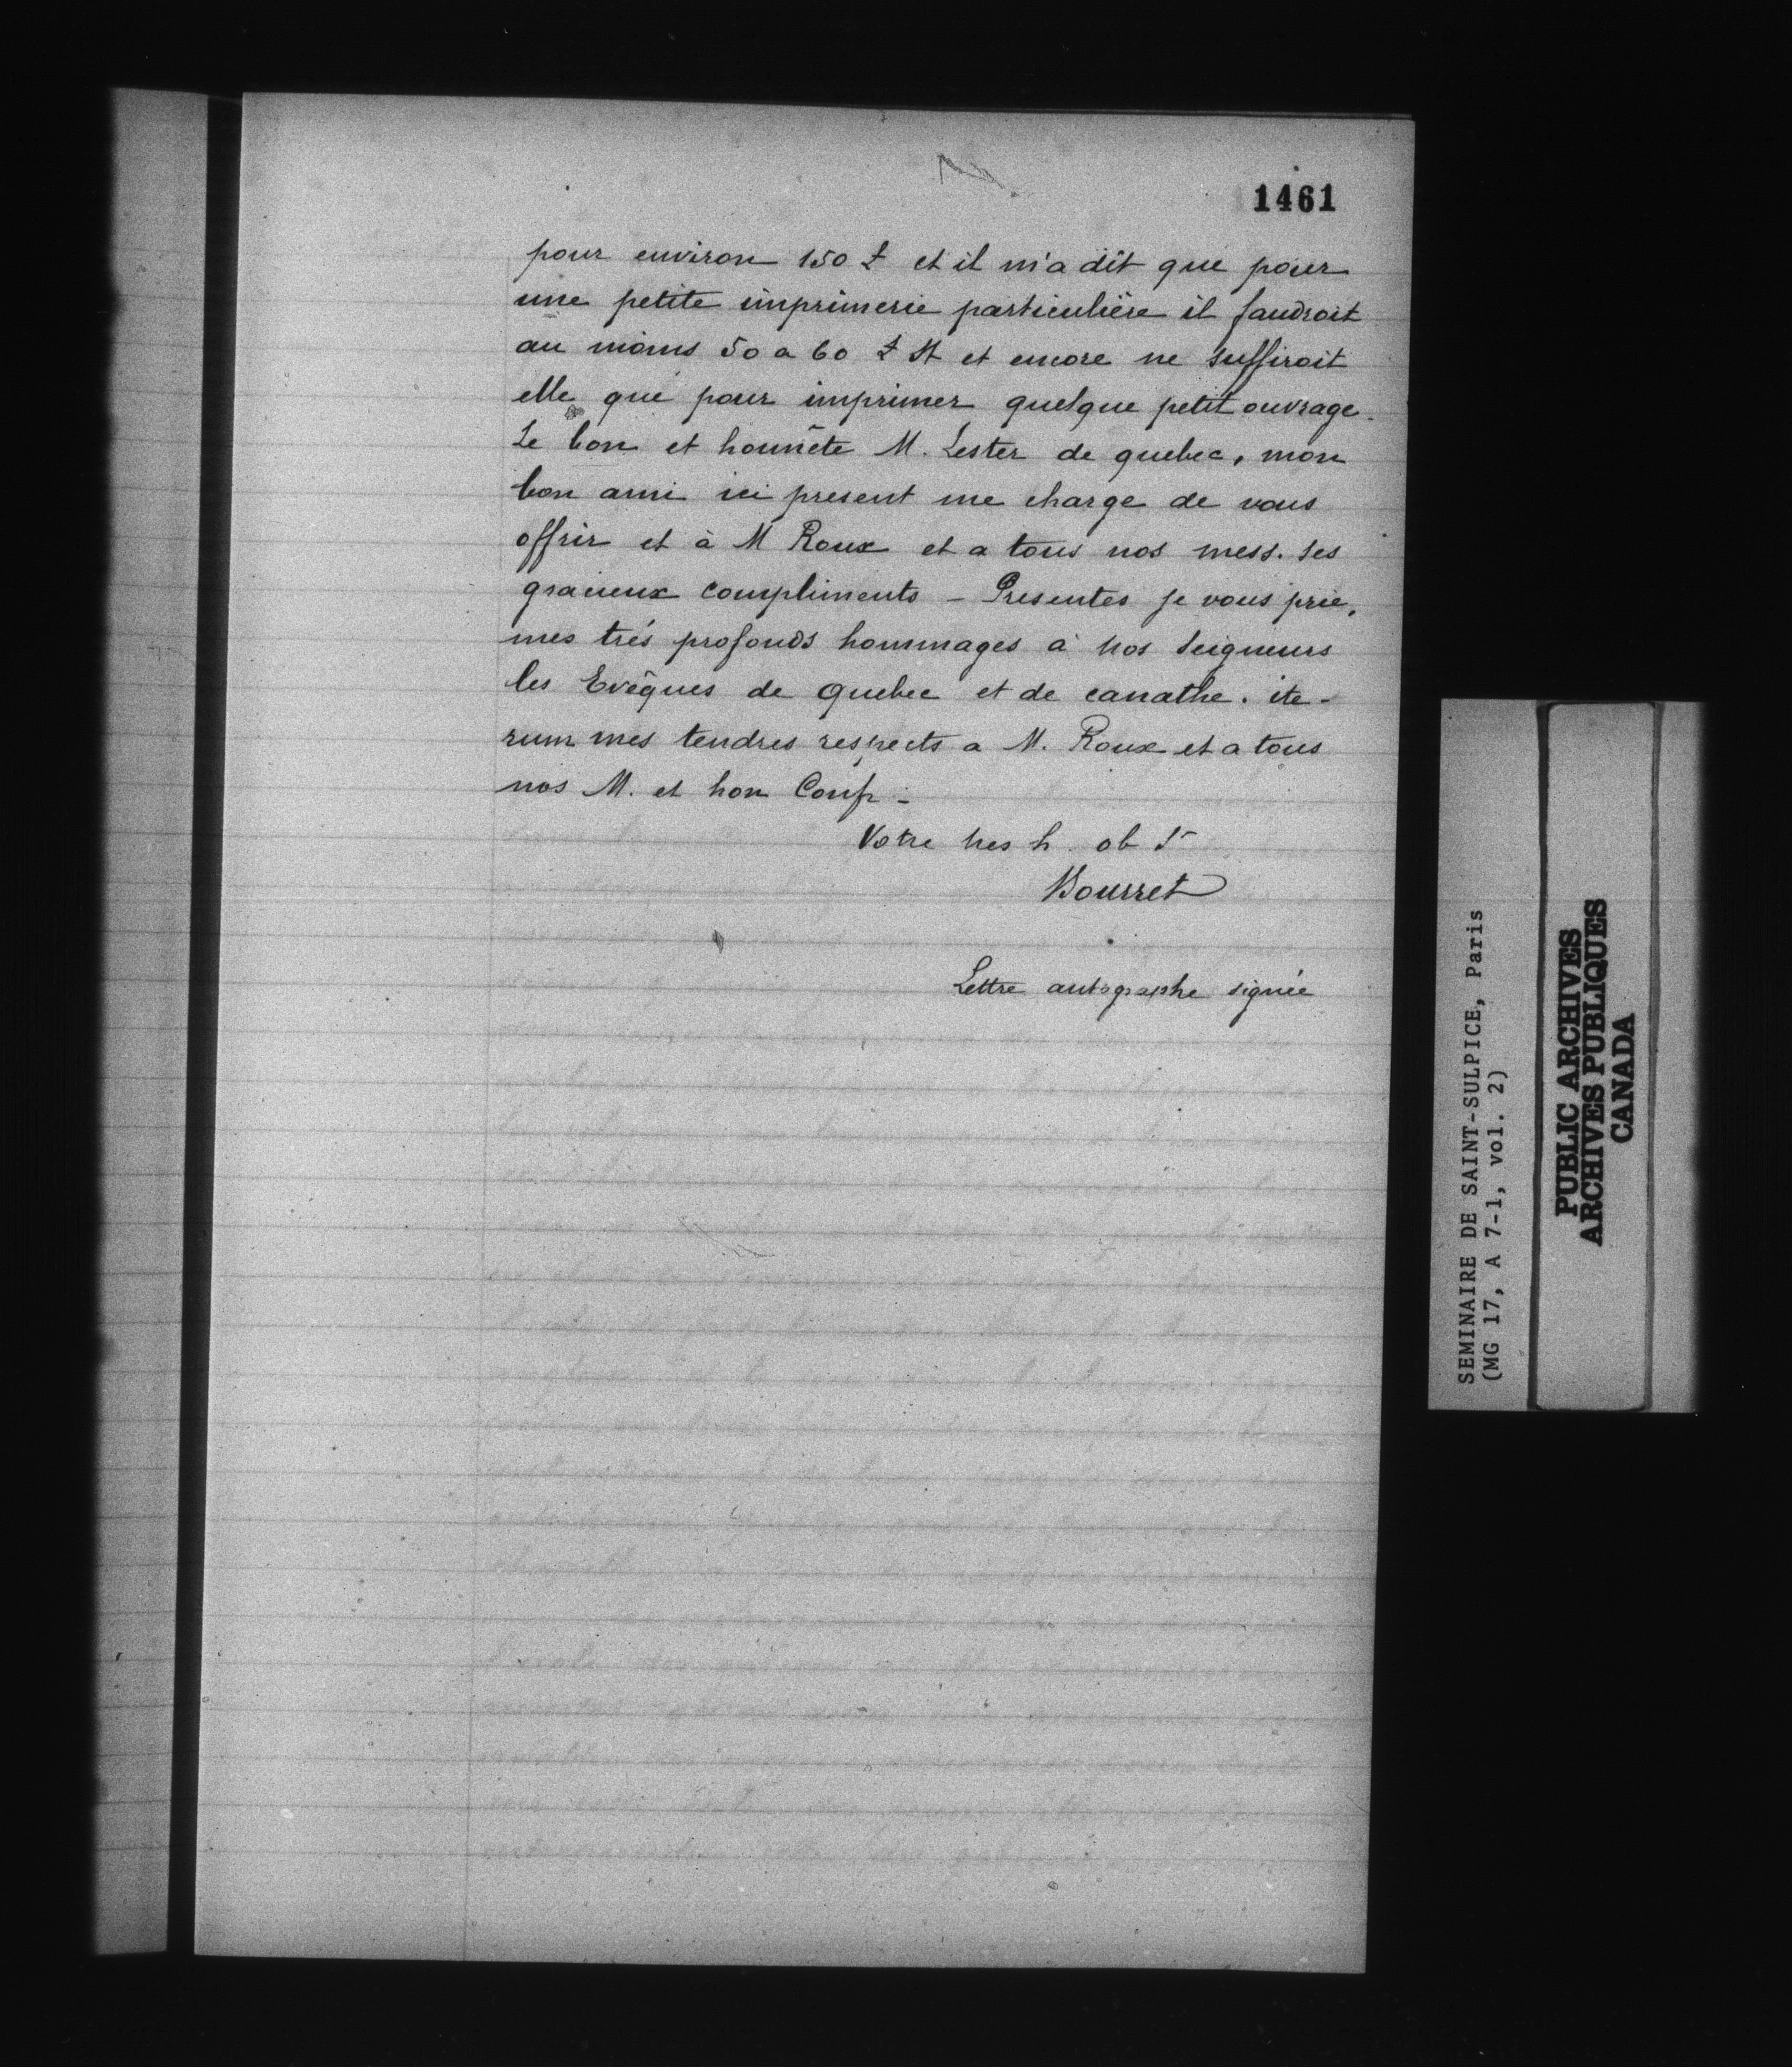 1461
pour environ 150 £ et il m'a dit que pour
une petite imprimerie particulière il faudroit
au moins 50 a 60 £ St et encore ne suffiroit
elle que pour imprimer quelque petit ouvrage.
Le bon et honnête M. Lester de quebec, mon
bon ami ici present me charge de vous
offrir et à M Roux et a tous nos mess. ses
gracieux compliments - Presentes je vous prie,
mes trés profonds hommages à nos Seigneurs
les Evêques de Quebec et de canathe. ite-
rum mes tendres respects a M. Roux et a tous
nos M. et hon Conf -
Votre tres h. ob Sr
Bourret
Lettre autographe signée
SEMINAIRE DE SAINT-SULPICE, Paris
(MG 17, A 7-1, vol. 2)
PUBLIC ARCHIVES
ARCHIVES PUBLIQUES
CANADA